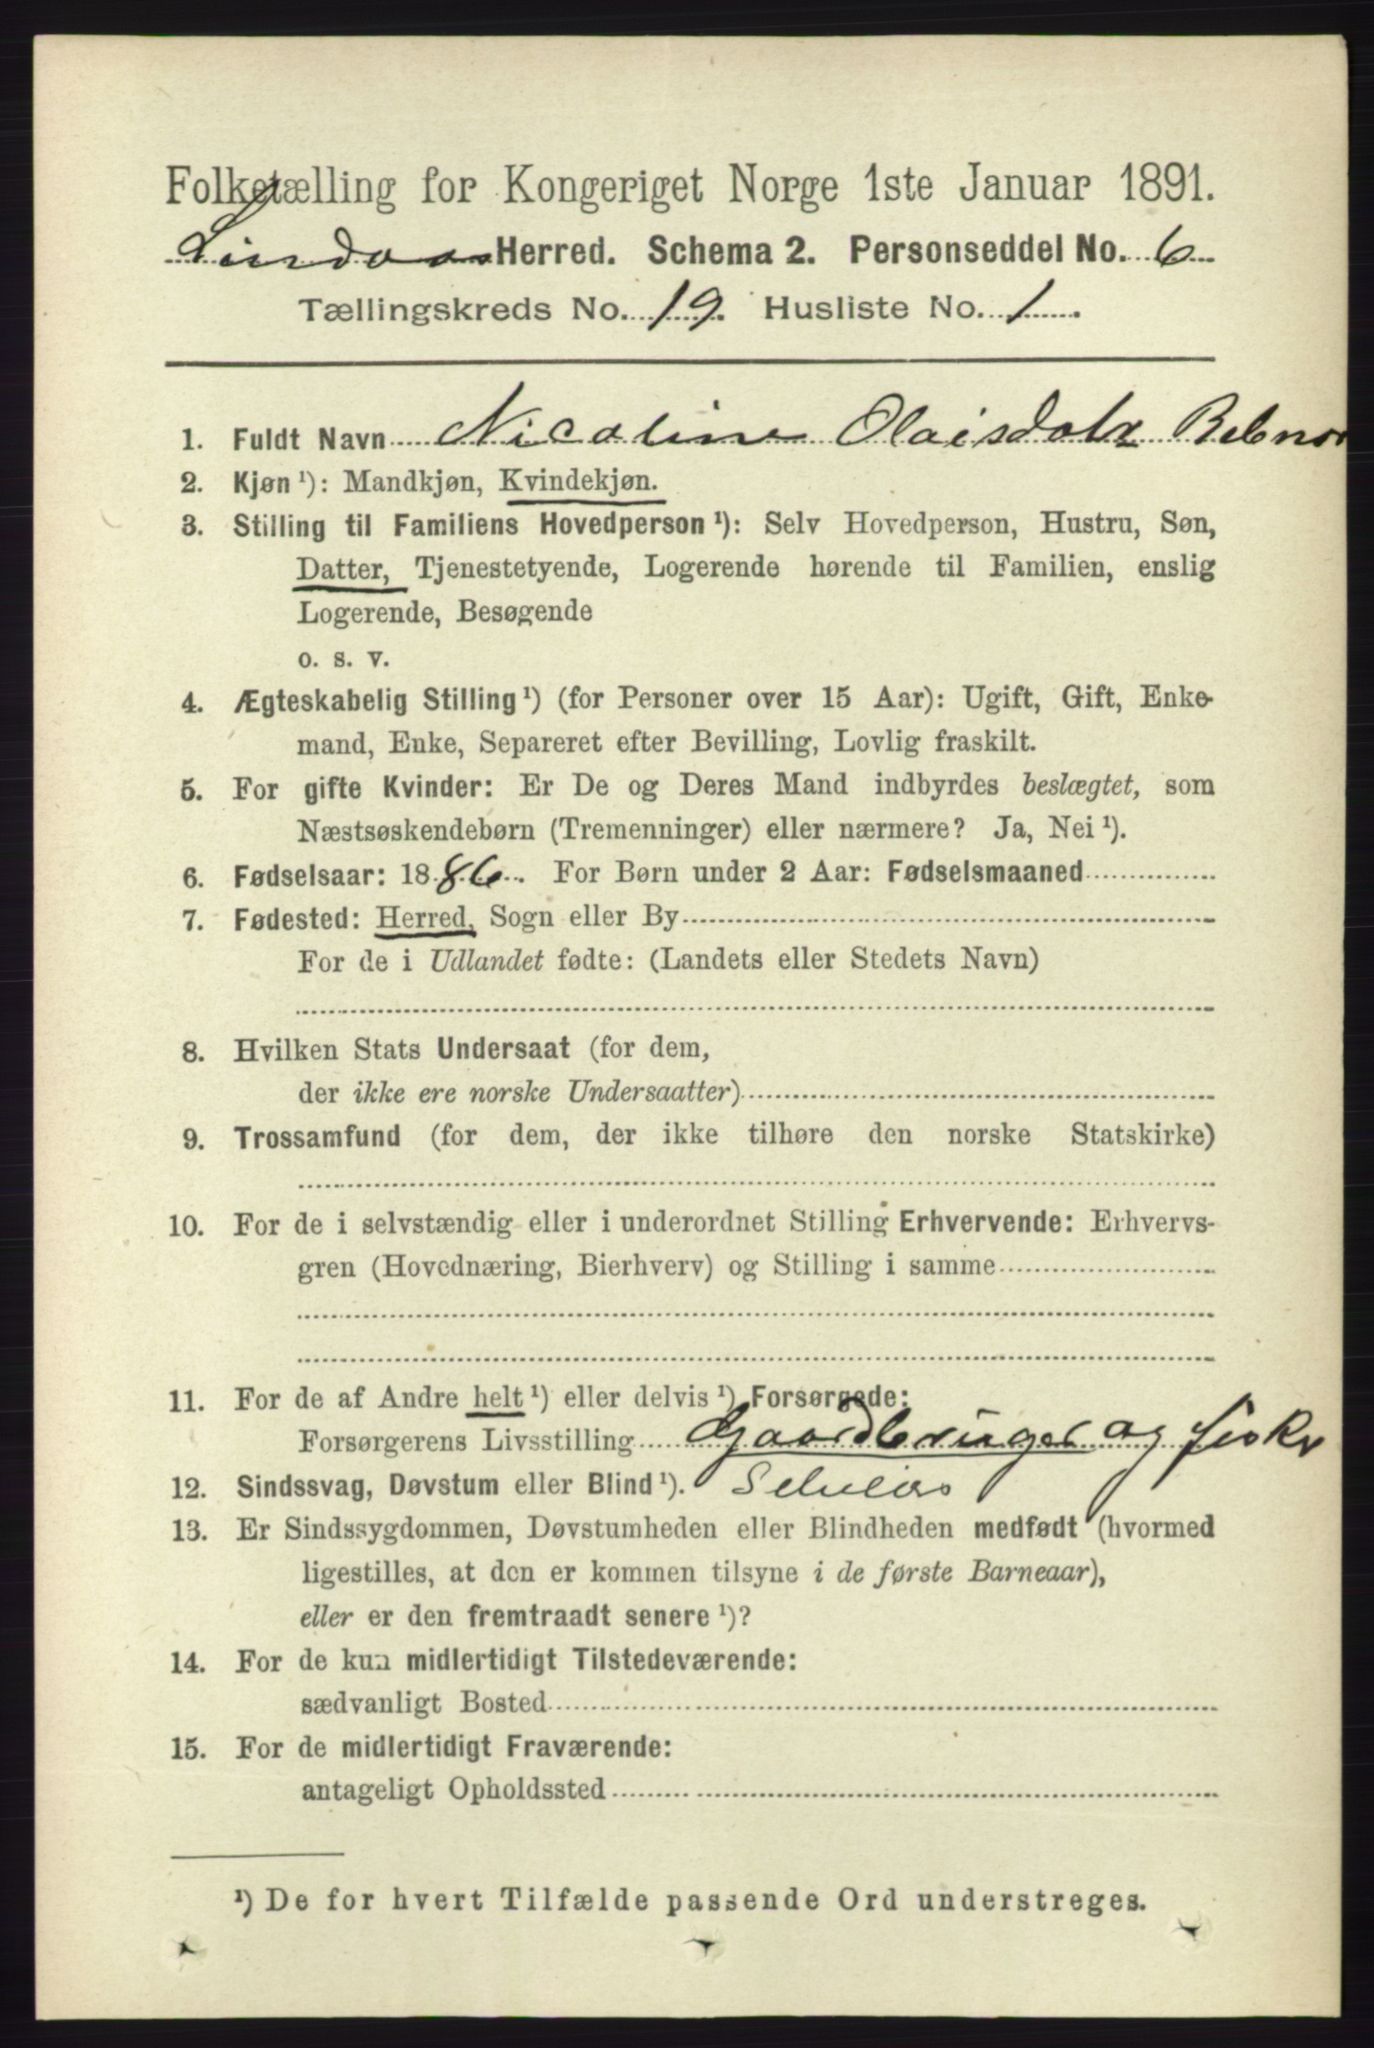 Folketælling for Kongeriget Norge 1ste Januar 1891.
Lindaas Herred. Schema 2. Personseddel No. 6
Tællingskreds No. 19. Husliste No. 1.
1. Fuldt Navn Nicoline Olaisdatr
2. Kjøn ¹): Mandkjøn, Kvindekjøn.
3. Stilling til Familiens Hovedperson ¹): Selv Hovedperson, Hustru, Søn,
Datter, Tjenestetyende, Logerende hørende til Familien, enslig
Logerende, Besøgende
o. s. v.
4. Ægteskabelig Stilling ¹) (for Personer over 15 Aar): Ugift, Gift, Enke-
mand, Enke, Separeret efter Bevilling, Lovlig fraskilt.
5. For gifte Kvinder: Er De og Deres Mand indbyrdes beslægtet, som
Næstsøskendebørn (Tremenninger) eller nærmere? Ja, Nei ¹).
6. Fødselsaar: 1886. For Børn under 2 Aar: Fødselsmaaned
7. Fødested: Herred, Sogn eller By
For de i Udlandet fødte: (Landets eller Stedets Navn)
8. Hvilken Stats Undersaat (for dem,
der ikke ere norske Undersaatter)
9. Trossamfund (for dem, der ikke tilhøre den norske Statskirke)
10. For de i selvstændig eller i underordnet Stilling Erhvervende: Erhvervs-
gren (Hovednæring, Bierhverv) og Stilling i samme
11. For de af Andre helt ¹) eller delvis ¹) Forsørgede:
Forsørgerens Livsstilling Gaardbruger og fisker
12. Sindssvag, Døvstum eller Blind ¹).
13. Er Sindssygdommen, Døvstumheden eller Blindheden medfødt (hvormed
ligestilles, at den er kommen tilsyne i de første Barneaar),
eller er den fremtraadt senere ¹)?
14. For de kun midlertidigt Tilstedeværende:
sædvanligt Bosted
15. For de midlertidigt Fraværende:
antageligt Opholdssted
¹) De for hvert Tilfælde passende Ord understreges.